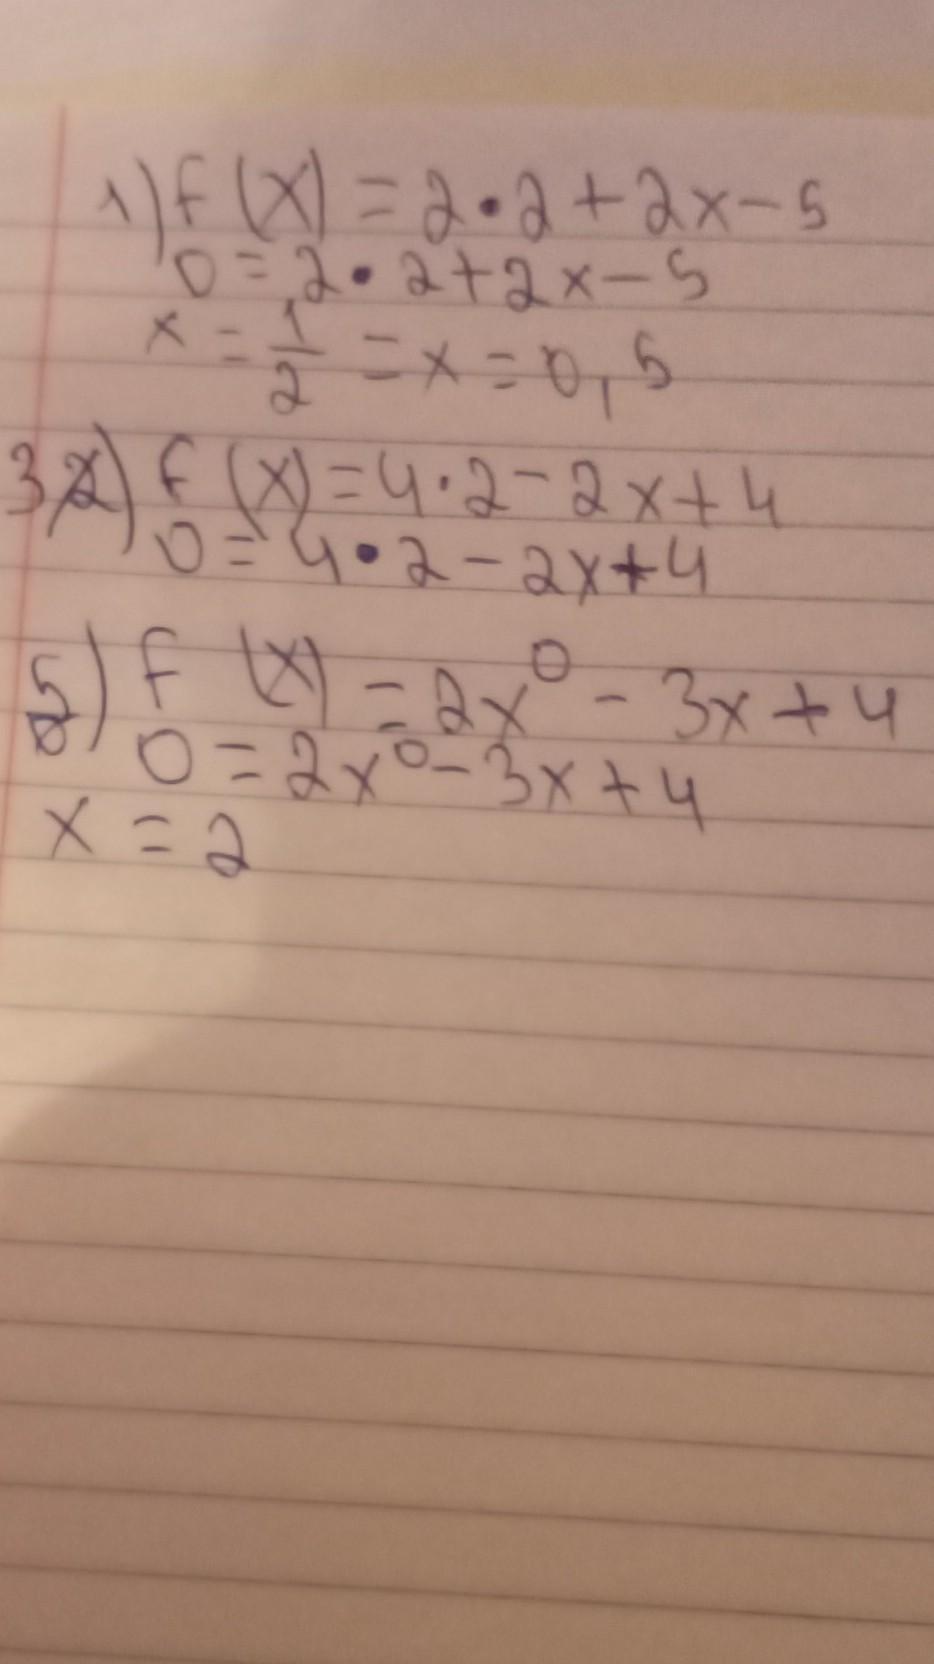 1) f(x) = 2•2+2x-5
0 = 2•2+2x-5
x = 1/2 = x = 0,5
3) f(x) = 4·2-2x+4
0 = 4•2-2x+4
5) f(x) = 2x⁰ - 3x + 4
0 = 2x⁰ - 3x + 4
x = 2